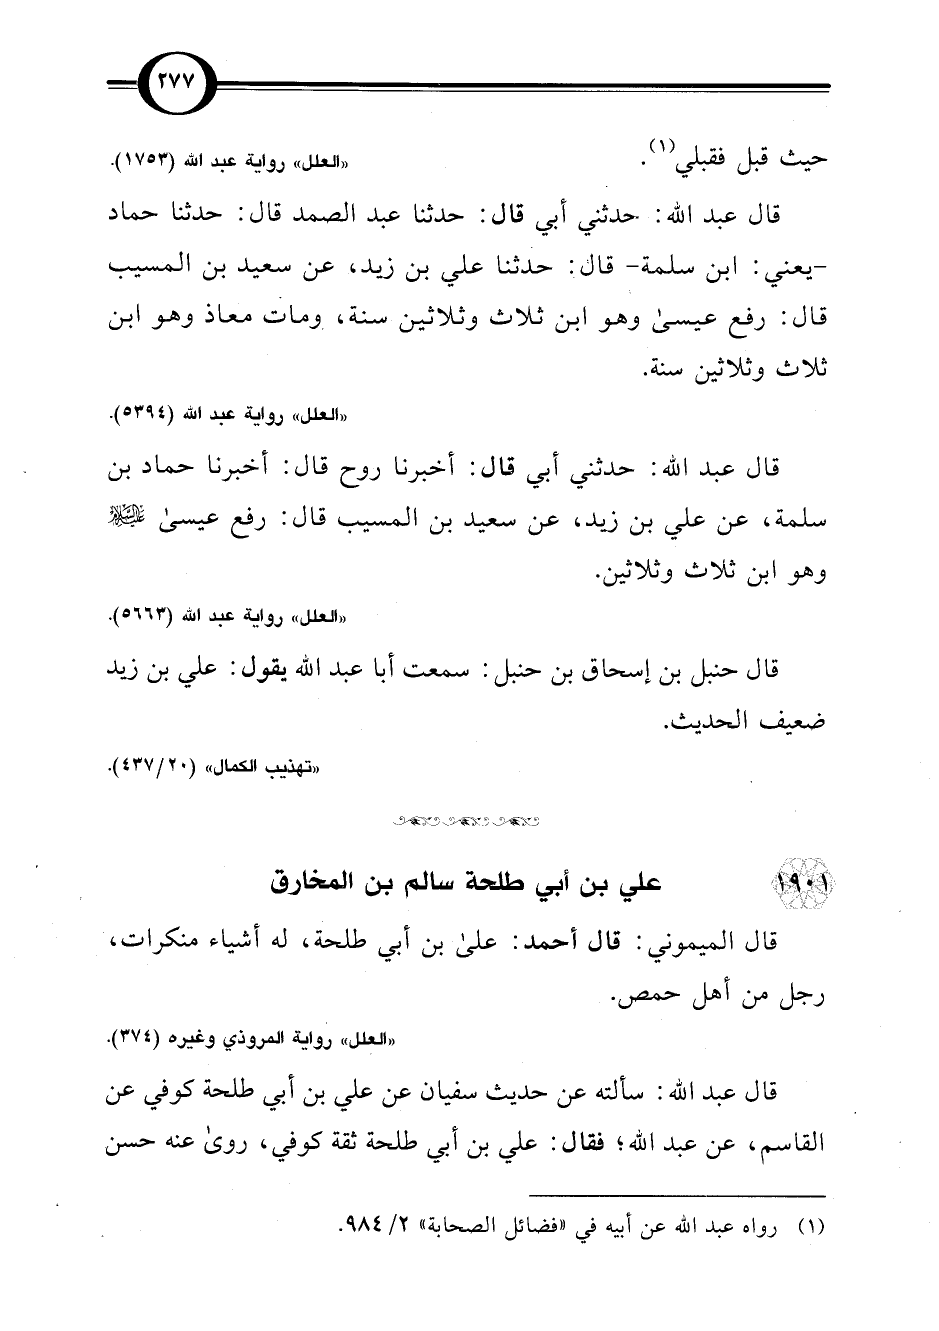 ٢٧٧
حيث قبل فقبلي(١). «العلل» رواية عبد الله (١٧٥٣).
قال عبد الله: حدثني أبي قال: حدثنا عبد الصمد قال: حدثنا حماد
-يعني: ابن سلمة- قال: حدثنا علي بن زيد، عن سعيد بن المسيب
قال: رفع عيسىٰ وهو ابن ثلاث وثلاثين سنة، ومات معاذ وهو ابن
ثلاث وثلاثين سنة.
«العلل» رواية عبد الله (٥٣٩٤).
قال عبد الله: حدثني أبي قال: أخبرنا روح قال: أخبرنا حماد بن
سلمة، عن علي بن زيد، عن سعيد بن المسيب قال: رفع عيسىٰ عليه السلام
وهو ابن ثلاث وثلاثين.
«العلل» رواية عبد الله (٥٦٦٣).
قال حنبل بن إسحاق بن حنبل: سمعت أبا عبد الله يقول: علي بن زيد
ضعيف الحديث.
«تهذيب الكمال» (٢٠/ ٤٣٧).
١٩٠١ علي بن أبي طلحة سالم بن المخارق
قال الميموني: قال أحمد: علىٰ بن أبي طلحة، له أشياء منكرات،
رجل من أهل حمص.
«العلل» رواية المروذي وغيره (٣٧٤).
قال عبد الله: سألته عن حديث سفيان عن علي بن أبي طلحة كوفي عن
القاسم، عن عبد الله؛ فقال: علي بن أبي طلحة ثقة كوفي، روىٰ عنه حسن
(١) رواه عبد الله عن أبيه في «فضائل الصحابة» ٢/ ٩٨٤.